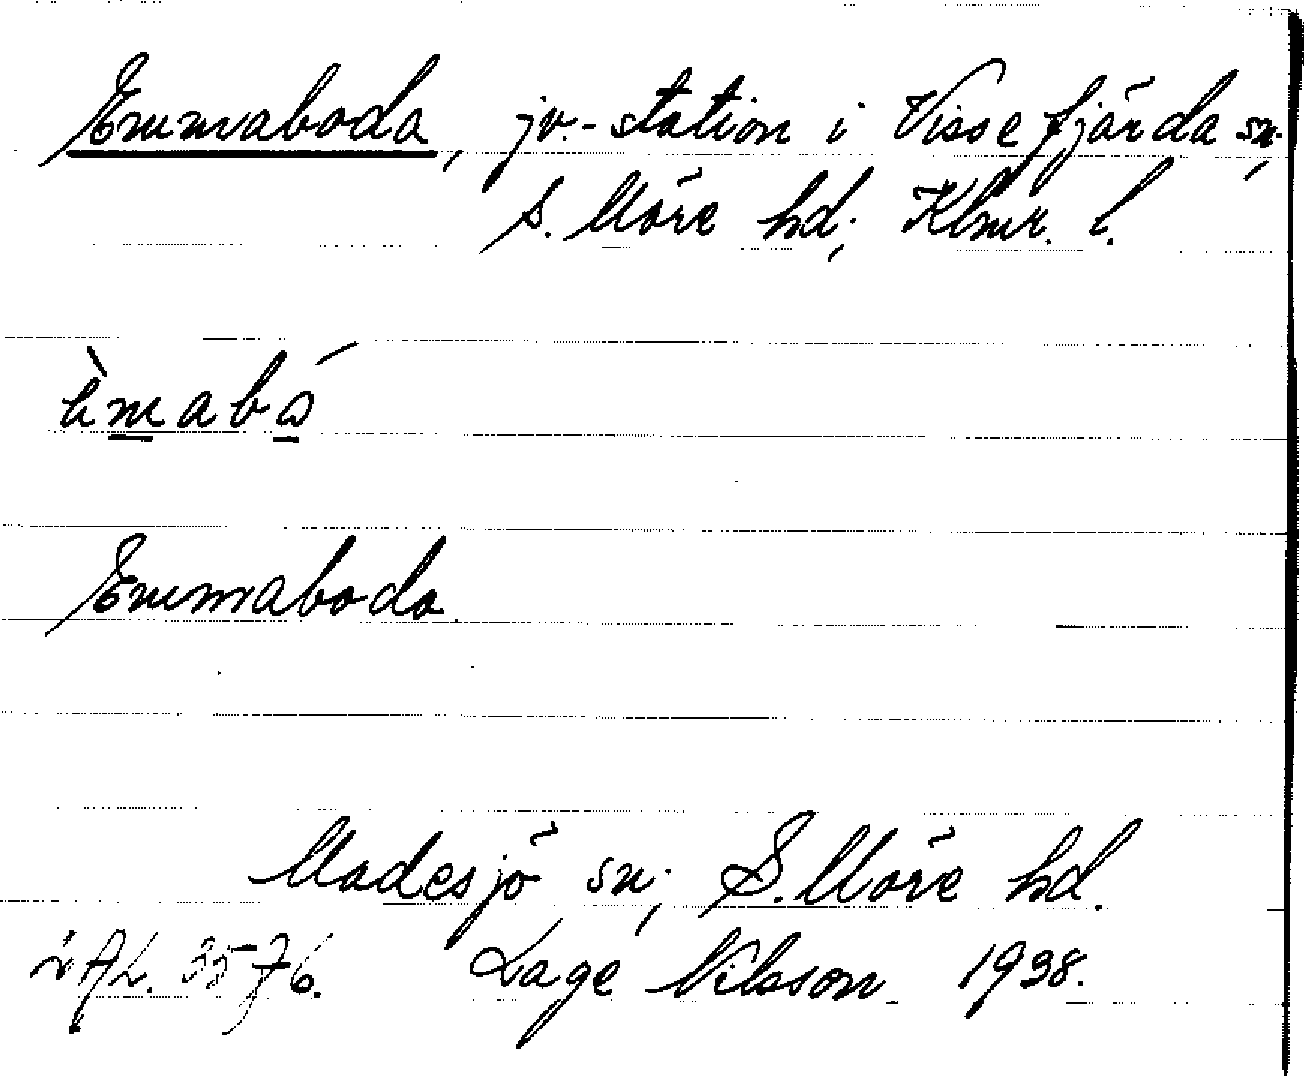 Emmaboda, jv.-station i Vissefjärda sn.,
S. Möre hd., Klmr. l.
Emmaboda.
Madesjö sn., S. Möre hd.
i AL. 3576. Lage Nilsson 1938.